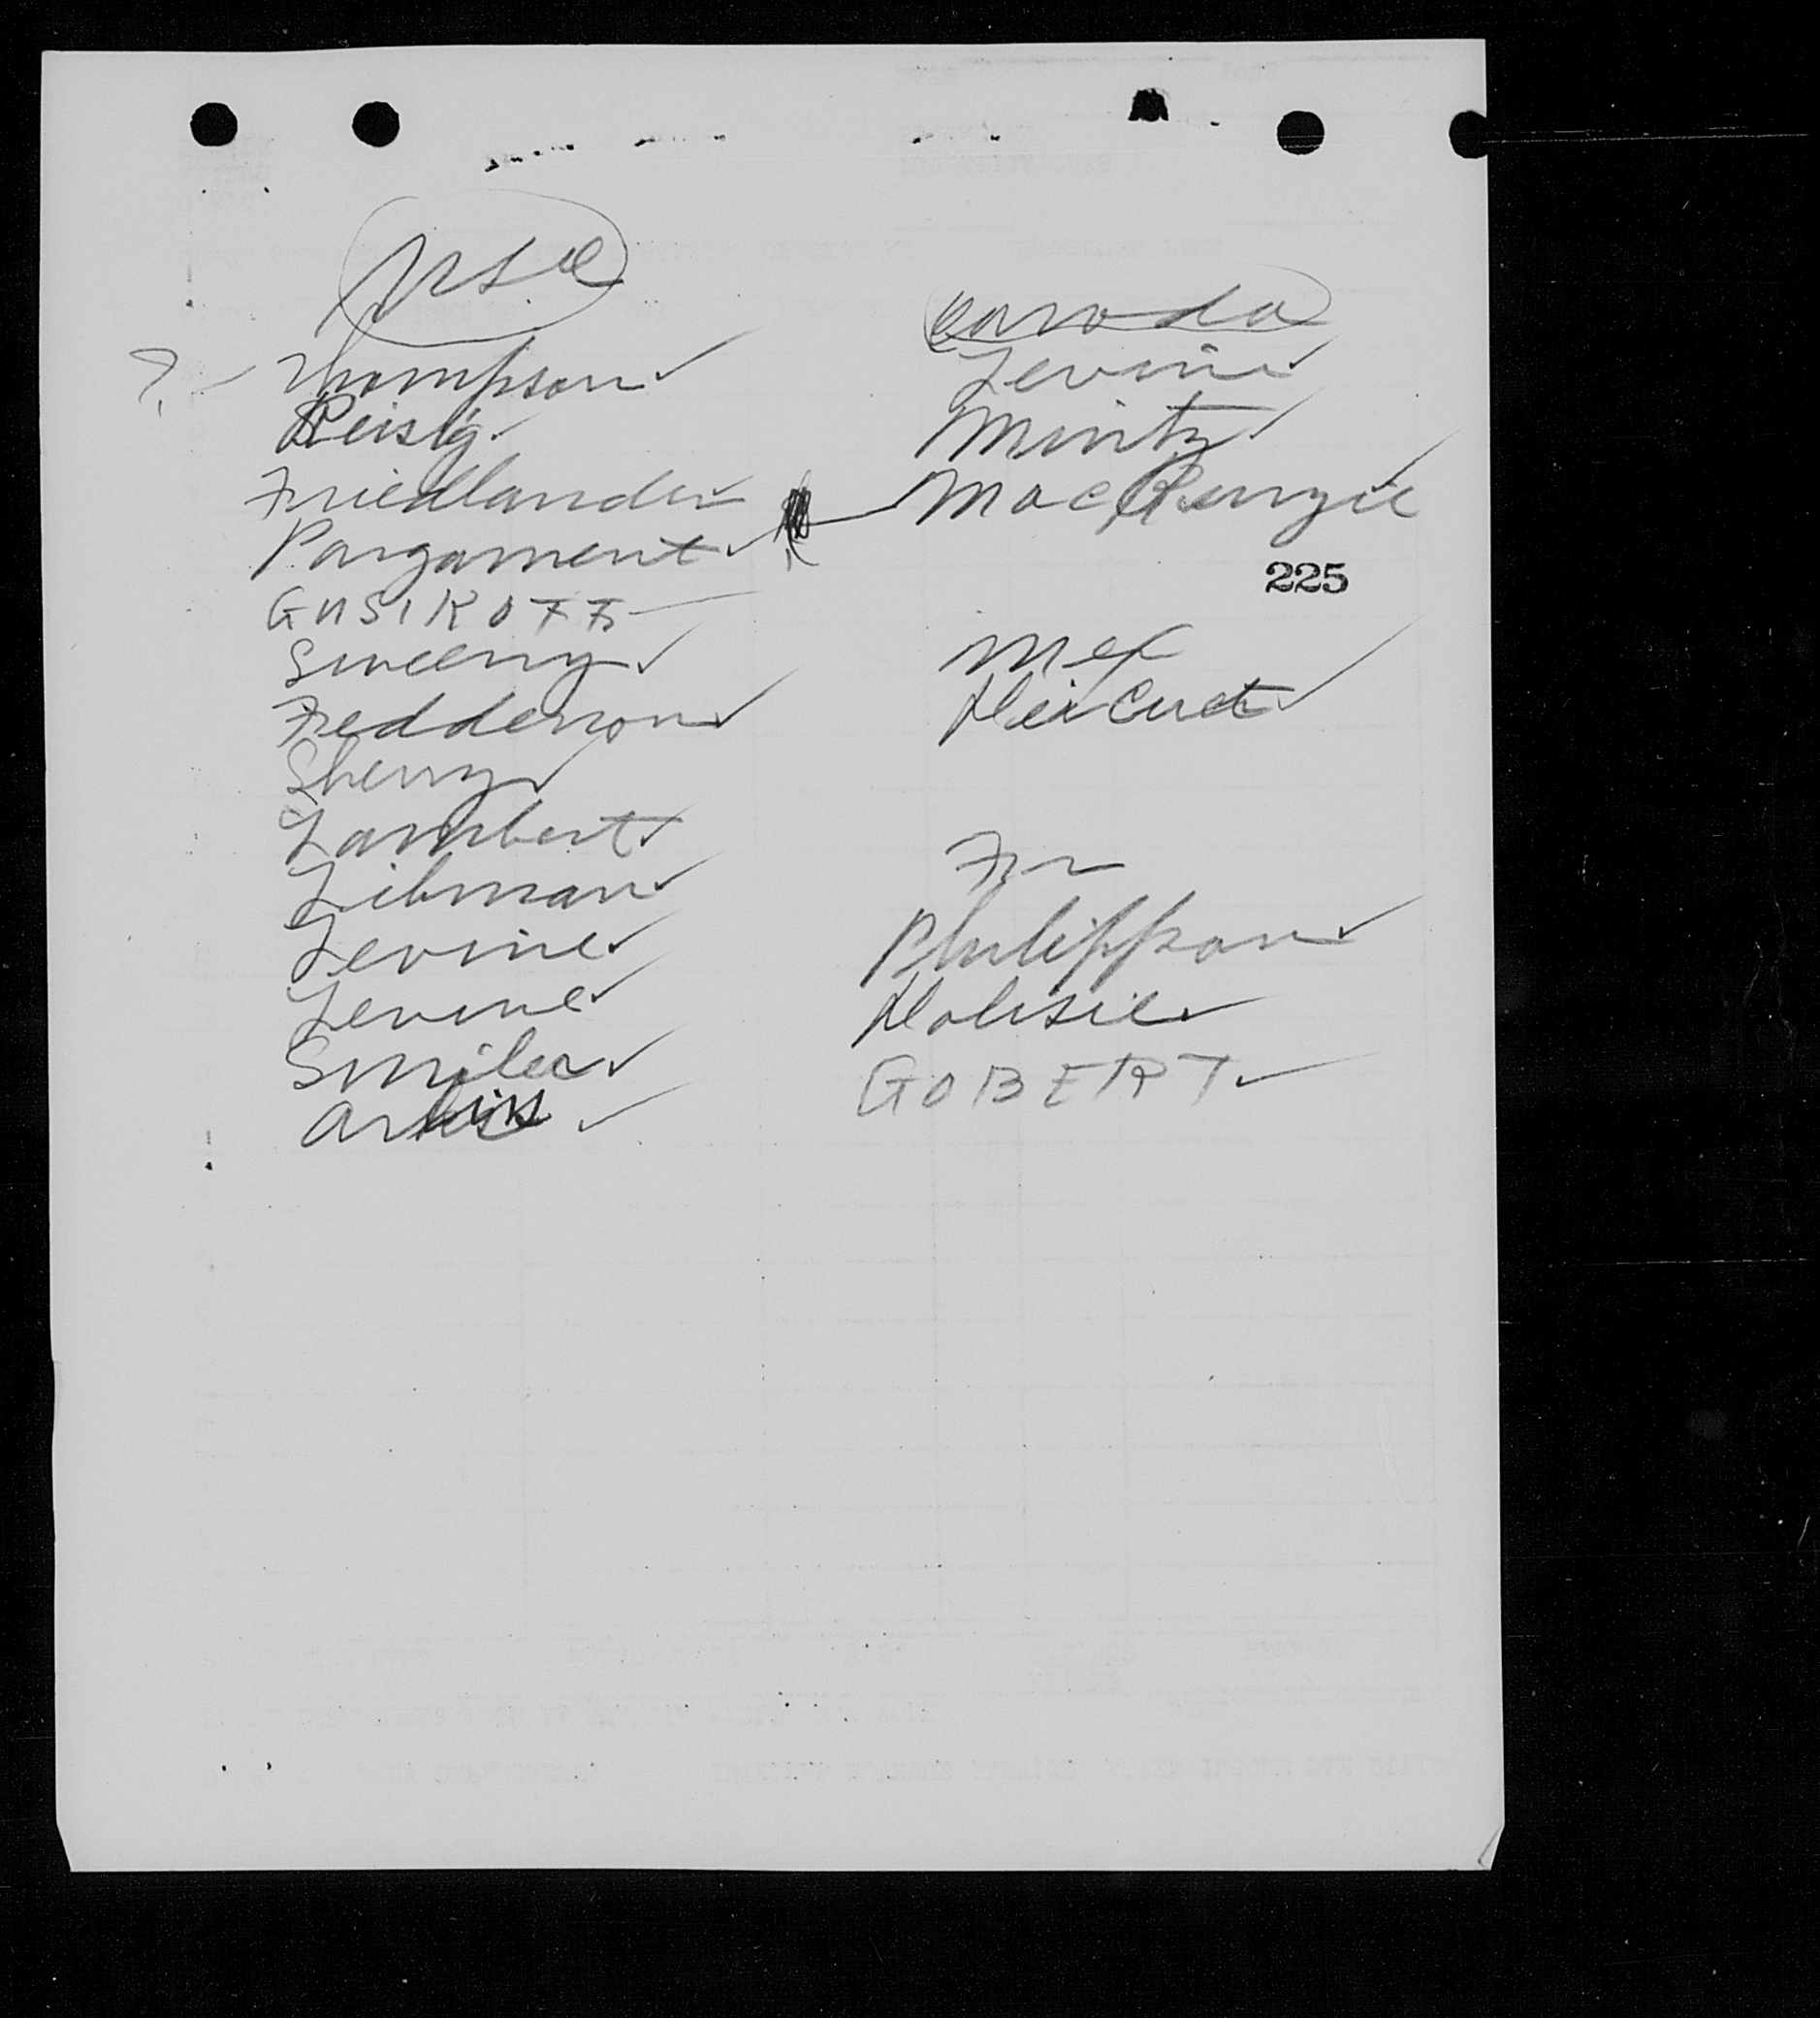 USA
? - Thompson ✓
Reisig
Friedlander ✓
Pargament ✓
GUSIKOFF -
Sweeny ✓
Fedderson ✓
Sherry ✓
Lambert ✓
Libman ✓
Levine ✓
Levine ✓
Smiler ✓
Canada
Levine ✓
Mintz ✓
MacKenzie ✓
225
Mex
✓
Fr
Philippson ✓
✓
GOBERT ✓